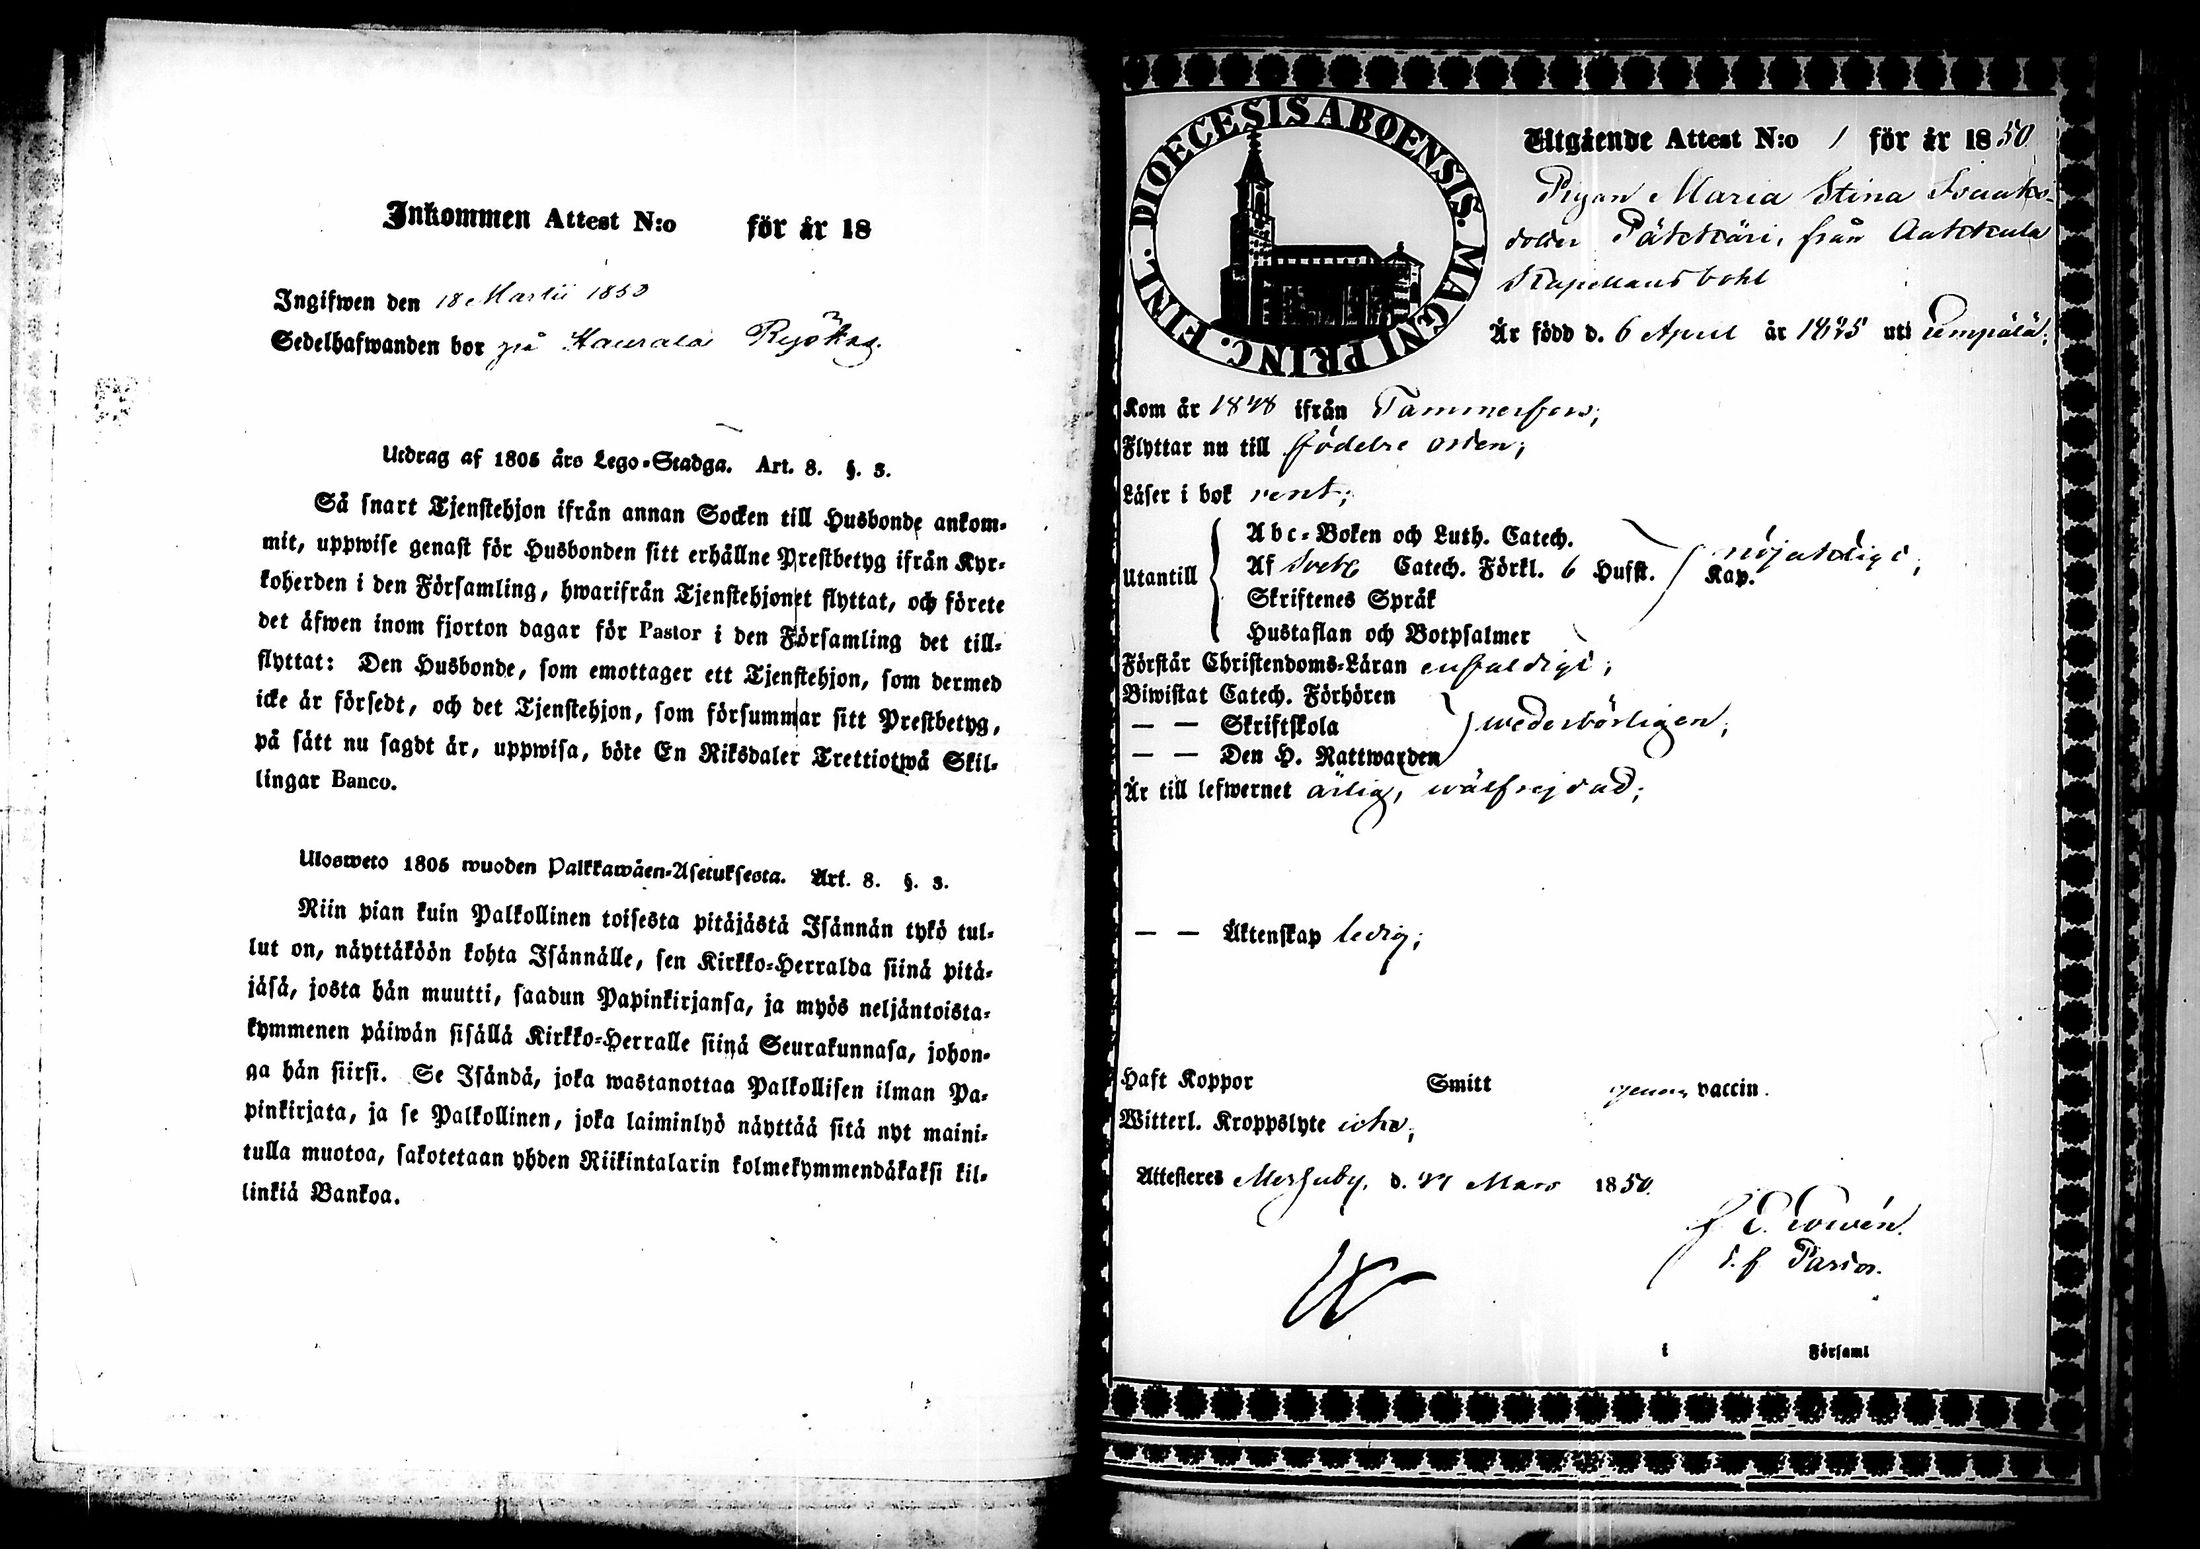 Inkommen Attest N:o för år 18
Ingifwen den 18 Martii 1850
Sedelhafwanden bor på
Utdrag af 1805 års Lego-Stadga. Art. 8. §. 3.
Så snart Tjenstehjon ifrån annan Socken till Husbonde ankom-
mit, uppwise genast för Husbonden sitt erhållne Prestbetyg ifrån Kyr-
koherden i den Församling, hwarifrån Tjenstehjonet flyttat, och förete
det äfwen inom fjorton dagar för Pastor i den Församling det till-
flyttat: Den Husbonde, som emottager ett Tjenstehjon, som dermed
icke är försedt, och det Tjenstehjon, som försummar sitt Prestbetyg,
på sätt nu sagdt är, uppwisa, böte En Riksdaler Trettiotwå Skil-
lingar Banco.
Ulosweto 1805 wuoden Palkkawäen-Asetuksesta. Art. 8. §. 3.
Niin pian kuin Palkollinen toisesta pitäjästä Isännän tykö tul-
lut on, näyttäköön kohta Isännälle, sen Kirkko-Herralda siinä pitä-
jäsä, josta hän muutti, saadun Papinkirjansa, ja myös neljäntoista-
kymmenen päiwän sisällä Kirkko-Herralle siinä Seurakunnasa, johon-
ga hän siirsi. Se Isändä, joka wastanottaa Palkollisen ilman Pa-
pinkirjata, ja se Palkollinen, joka laiminlyö näyttää sitä nyt maini-
tulla muotoa, sakotetaan yhden Riikintalarin kolmekymmendäkaksi kil-
linkiä Bankoa.
DIOECESIS ABOENSIS. MAGNI PRINC. FINL.
Utgående Attest N:o 1 för år 1850
Pigan Maria Stina Isaaks-
dotter från
Kapellans bohl
Är född d. 6 April år 1825 uti Lempälä;
Kom år 1848 ifrån Tammerfors;
Flyttar nu till födelse orten;
Läser i bok rent;
Utantill
Abc-Boken och Luth. Catech.
Af Sveb. Catech. Förkl. 6 Hufst. Kap. nöjaktligt;
Skriftenes Språk
Hustaflan och Botpsalmer
Förstår Christendoms-Läran enfaldigt;
Biwistat Catech. Förhören
— — Skriftskola wederbörligen;
— — Den H. Nattwarden
Är till lefwernet ärlig, wälfrejdad;
— — Äktenskap ledig;
Haft Koppor Smitt genom vaccin.
Witterl. Kroppslyte icke;
Attesteres Messuby, d. Mars 1850.
v. Pastor.
i Församl